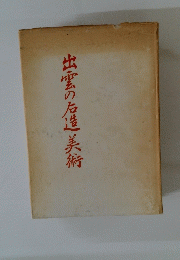 出雲の石造美術